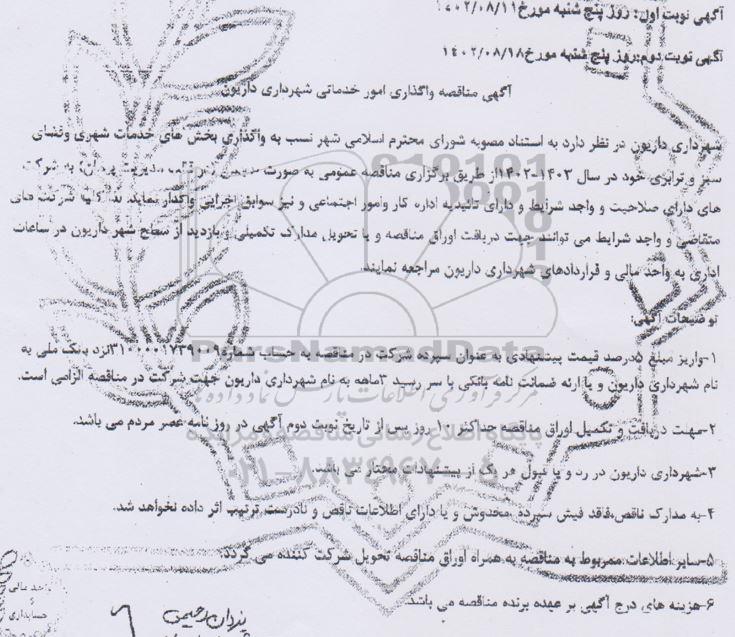 آگهی نوبت اول: روز پنج شنبه مورخ ۱۴۰۲/۰۸/۱۱
آگهی نوبت دوم:روز پنج شنبه مورخ ۱۴۰۲/۰۸/۱۸
آگهی مناقصه واگذاری امور خدماتی شهرداری داریون
شهرداری داریون در نظر دارد به استناد مصوبه شورای محترم اسلامی شهر نسب به واگذاری بخش های خدمات شهری وفضای
سبز و ترابری خود در سال ۱۴۰۳-۱۴۰۲از طریق برگزاری مناقصه عمومی به صورت به شرکت
های دارای صلاحیت و واجد شرایط و دارای تائیدیه اداره کار وامور اجتماعی و نیز سوابق اجرایی واگذار نماید. لذا کلیه شرکت های
متقاضی و واجد شرایط می توانند جهت دریافت اوراق مناقصه و یا تحویل مدارک تکمیلی و بازدید از سطح شهر داریون در ساعات
اداری به واحد مالی و قراردادهای شهرداری داریون مراجعه نمایند.
توضیحات آگهی:
۱-واریز مبلغ ۵درصد قیمت پیشنهادی به عنوان سپرده شرکت در مناقصه به حساب شماره۳۱۰۰۰۰۱۷۳۹۰۰۹نزد بانک ملی به
نام شهرداری داریون و یا ارئه ضمانت نامه بانکی با سر رسید ۳ماهه به نام شهرداری داریون جهت شرکت در مناقصه الزامی است.
۲-مهلت دریافت و تکمیل اوراق مناقصه حداکثر ۱۰ روز پس از تاریخ نوبت دوم آگهی در روزنامه عصر مردم می باشد.
۳-شهرداری داریون در رد و یا قبول هر یک از پیشنهادات مختار می باشد.
۴-به مدارک ناقص،فاقد فیش سپرده ،مخدوش و یا دارای اطلاعات ناقص و نادرست ترتیب اثر داده نخواهد شد.
۵-سایر اطلاعات مربوط به مناقصه به همراه اوراق مناقصه تحویل شرکت کننده می گردد.
۶-هزینه های درج آگهی بر عهده برنده مناقصه می باشد.
ParsNamadData
مرکز فرآوری اطلاعات پارس نماد داده ها
پایگاه اطلاع رسانی مناقصه و مزایده
۰۲۱-۸۸۳۴۹۶۷۰-۵
واحد مالی
و
حسابداری
یزدان رحیمی